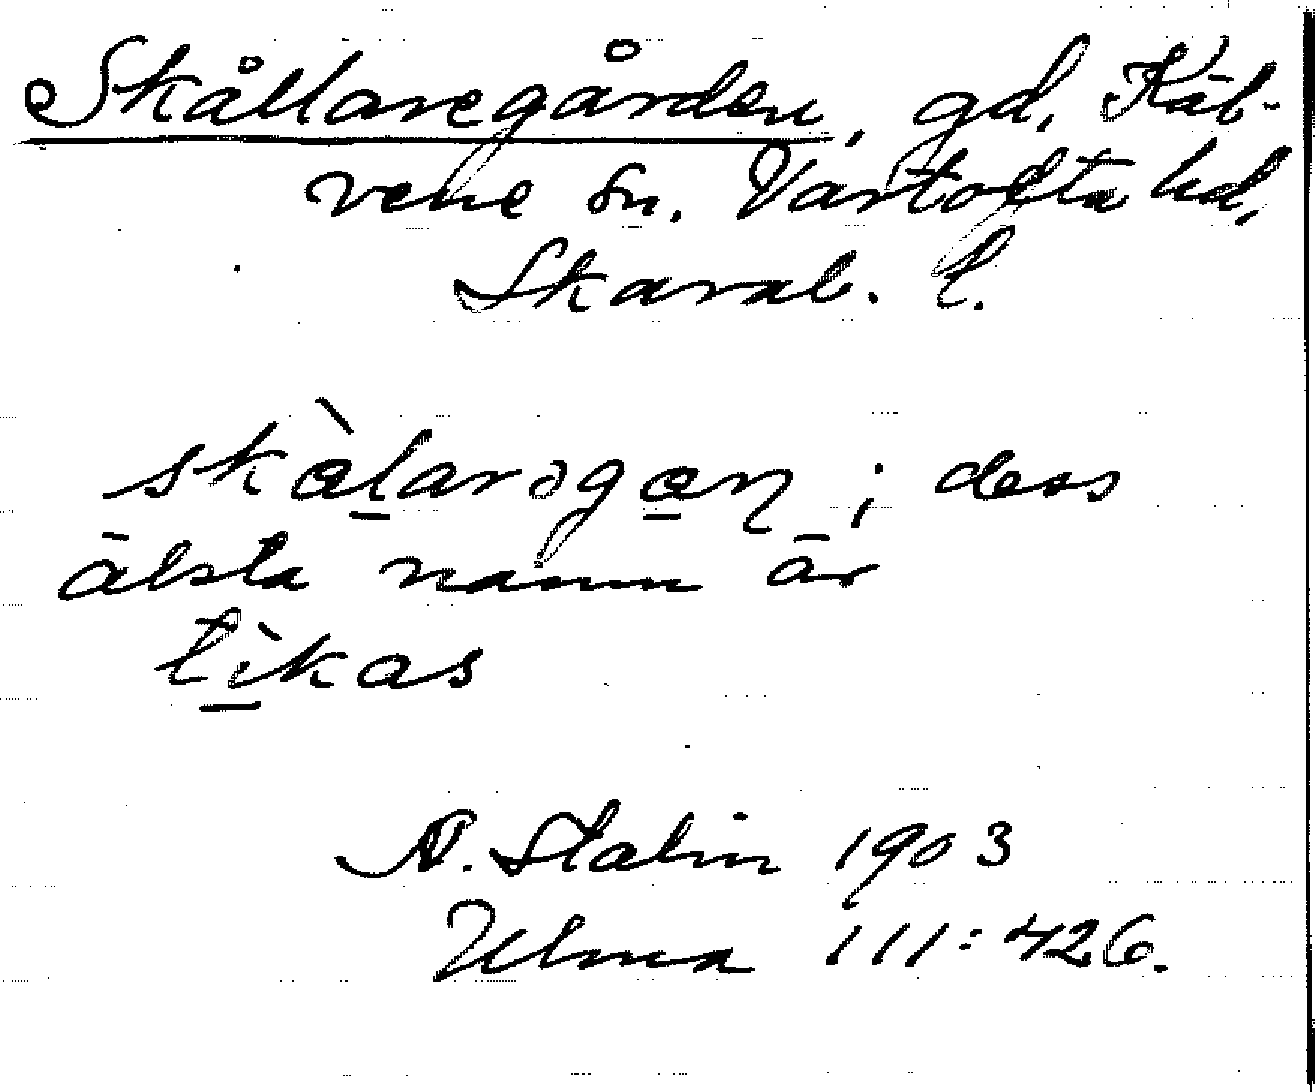 Skållaregården, gd, Käb-
vene sn. Vartofta hd,
Skarab. l.
skàlarəgan; dess
älsta namn är
tìkas
A. Stalin 1903
Ulma 111:426.